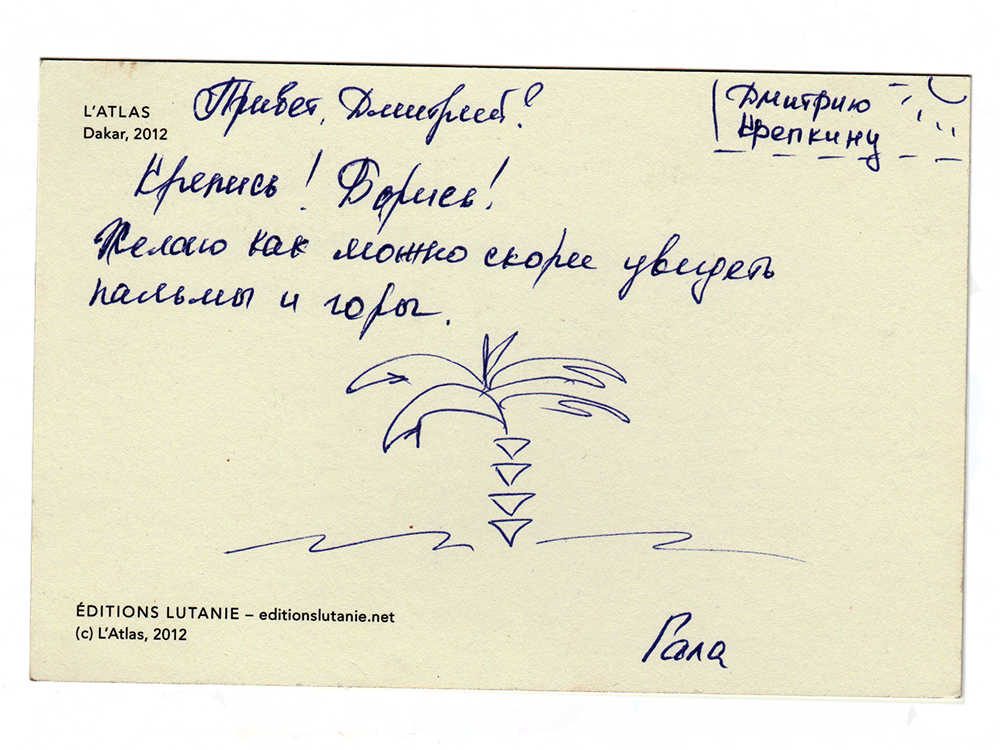 L'ATLAS
Dakar, 2012
Привет, Дмитрий!
Дмитрию
Крепкину
Крепись! Борись!
Желаю как можно скорее увидеть
пальмы и горы.
ÉDITIONS LUTANIE – editionslutanie.net
(c) L'Atlas, 2012
Гала